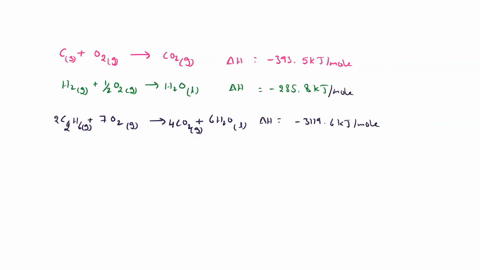 C(s) + O2(g) → CO2(g) ΔH = -393.5 kJ/mole
H2(g) + 1/2 O2(g) → H2O(l) ΔH = -285.8 kJ/mole
2C2H6(g) + 7O2(g) → 4CO2(g) + 6H2O(l) ΔH = -3119.6 kJ/mole